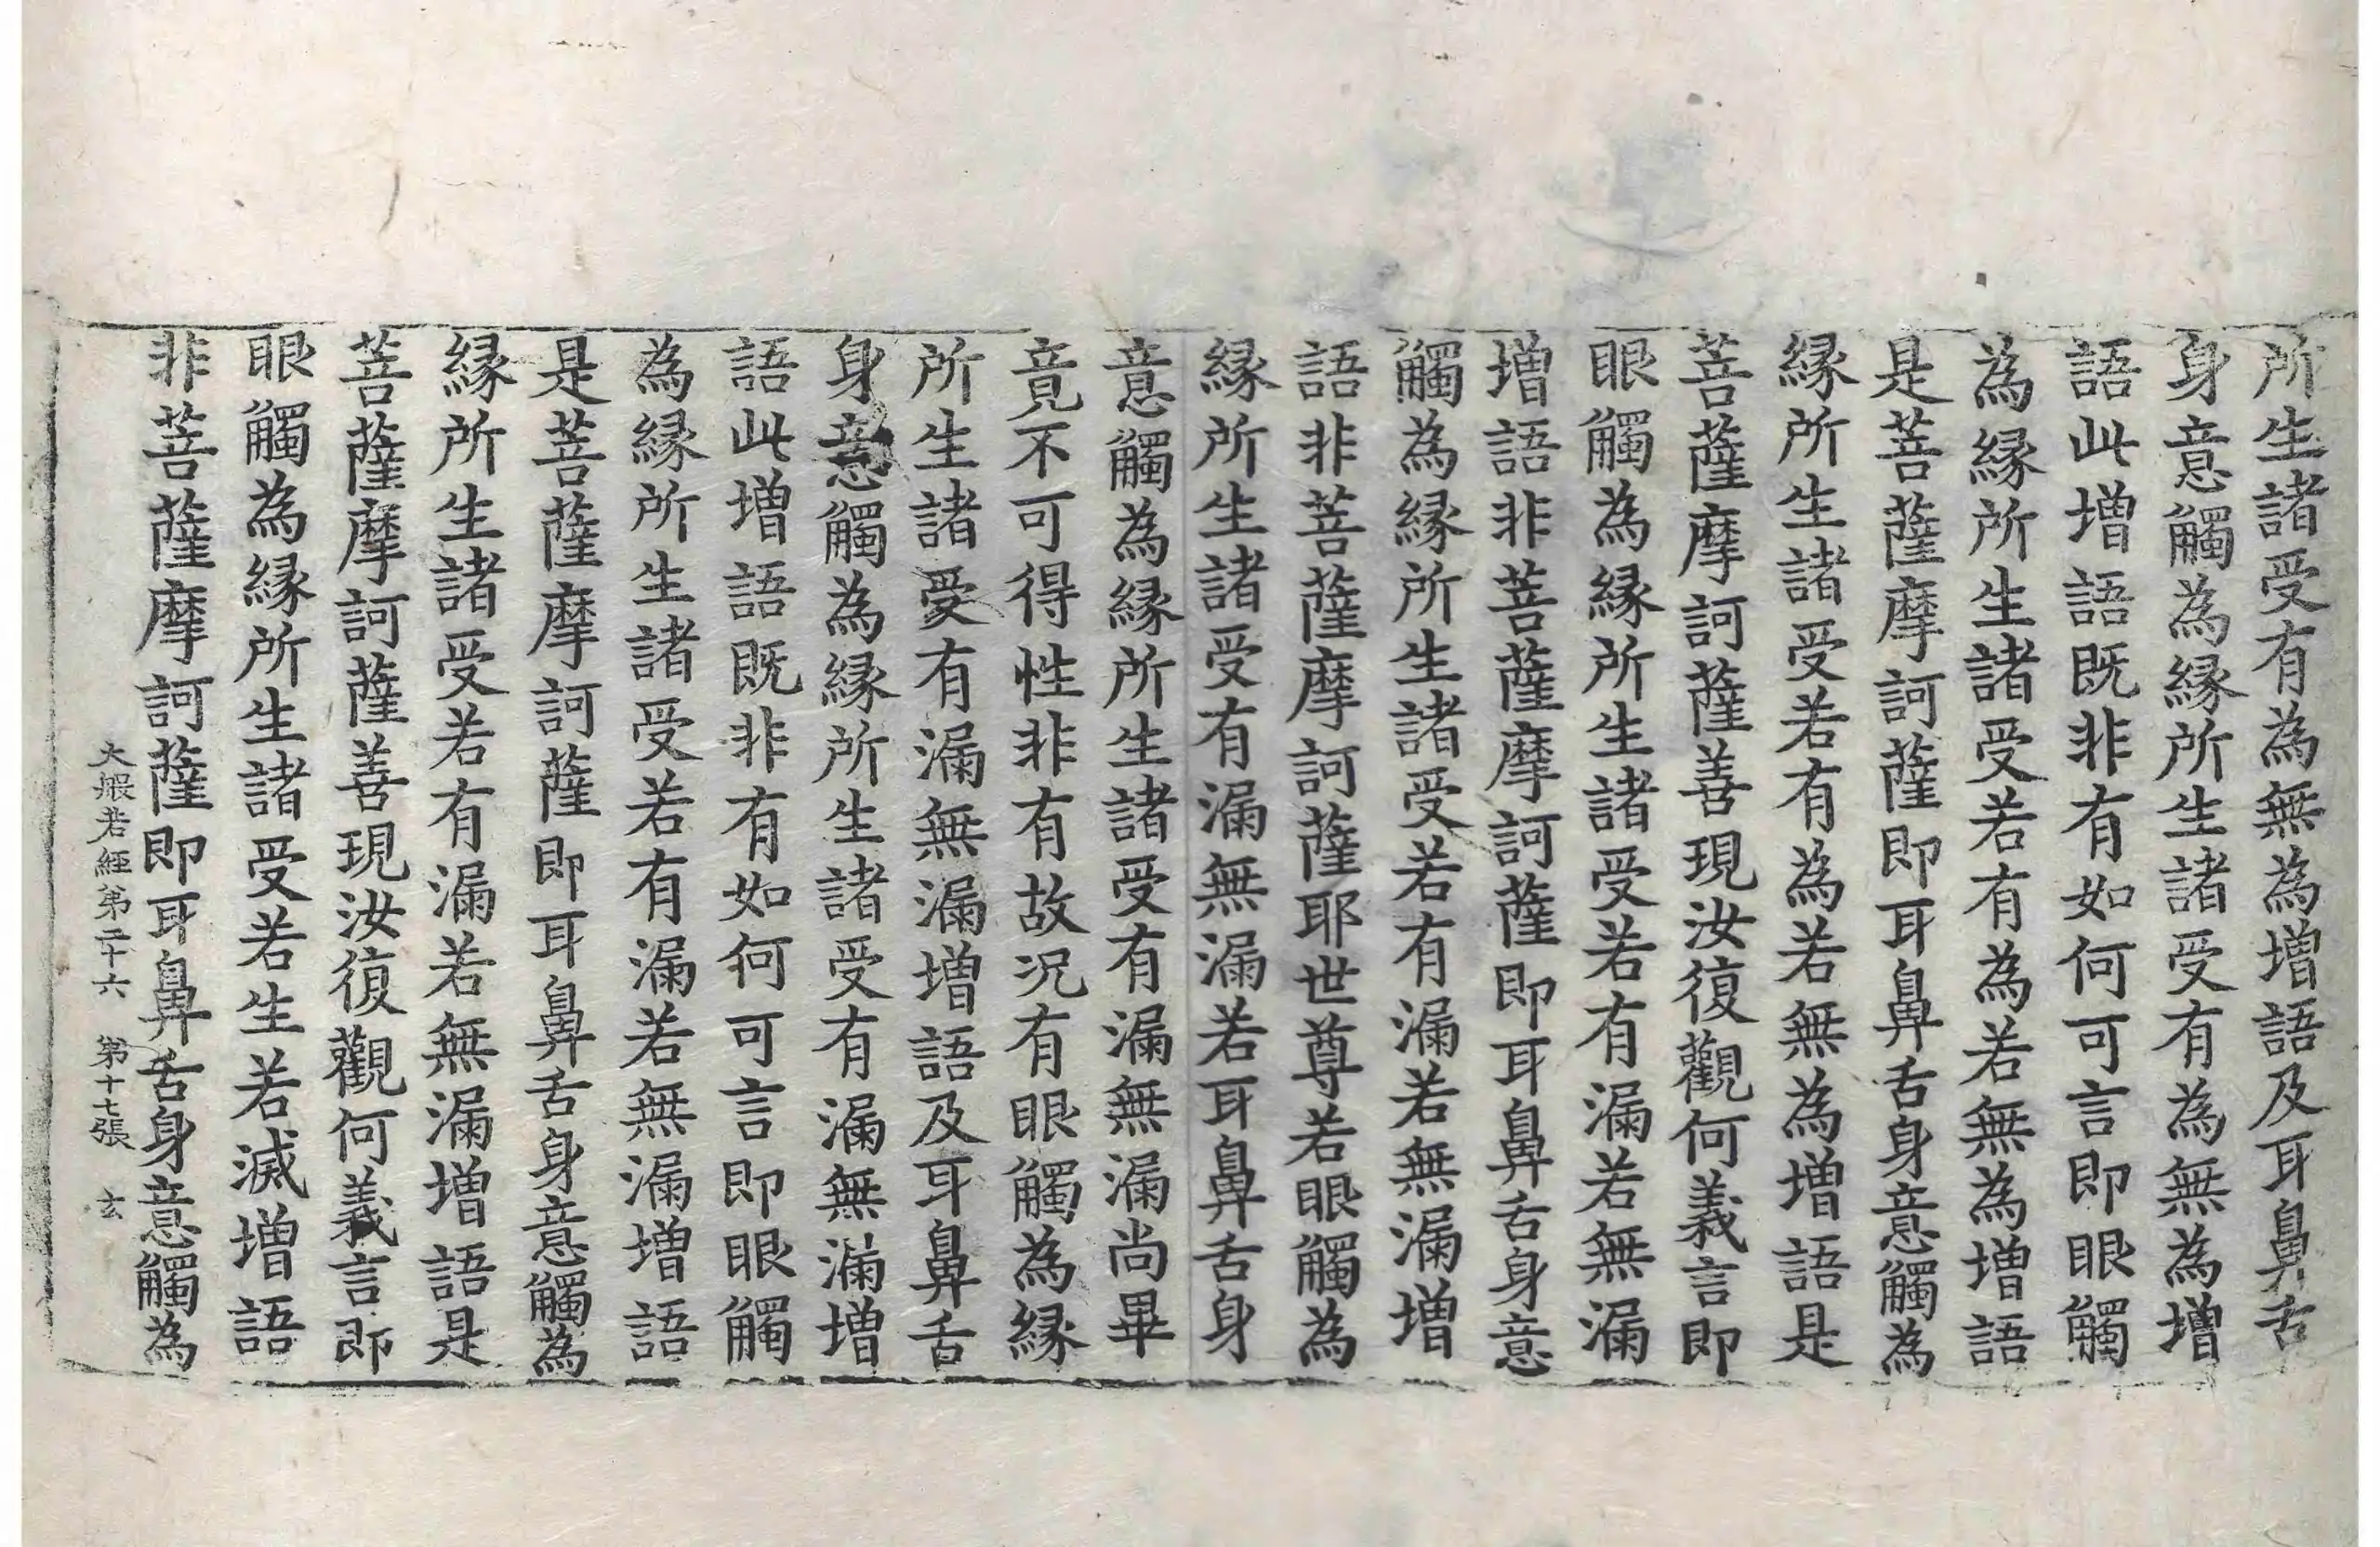 所生諸受有為無為增語及耳鼻舌
身意觸為緣所生諸受有為無為增
語此增語既非有如何可言即眼觸
為緣所生諸受若有為若無為增語
是菩薩摩訶薩即耳鼻舌身意觸為
緣所生諸受若有為若無為增語是
菩薩摩訶薩善現汝復觀何義言即
眼觸為緣所生諸受若有漏若無漏
增語非菩薩摩訶薩即耳鼻舌身意
觸為緣所生諸受若有漏若無漏增
語非菩薩摩訶薩耶世尊若眼觸為
緣所生諸受有漏無漏若耳鼻舌身
意觸為緣所生諸受有漏無漏尚畢
竟不可得性非有故況有眼觸為緣
所生諸受有漏無漏增語及耳鼻舌
身意觸為緣所生諸受有漏無漏增
語此增語既非有如何可言即眼觸
為緣所生諸受若有漏若無漏增語
是菩薩摩訶薩即耳鼻舌身意觸為
緣所生諸受若有漏若無漏增語是
菩薩摩訶薩善現汝復觀何義言即
眼觸為緣所生諸受若生若滅增語
非菩薩摩訶薩即耳鼻舌身意觸為
大般若經第二十六 第十七張 玄